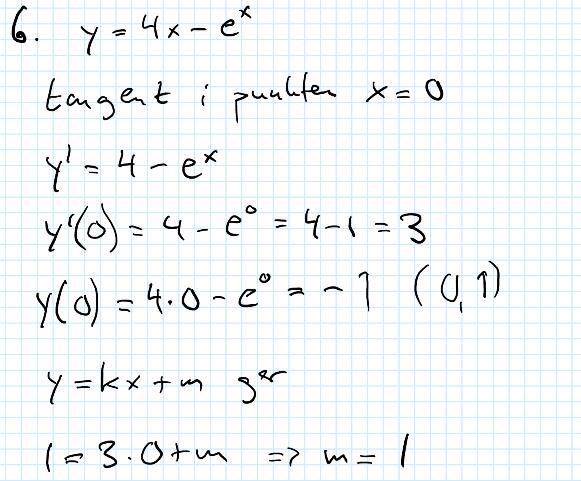 6. y = 4x - eˣ
tangent i punkten x = 0
y' = 4 - eˣ
y'(0) = 4 - e⁰ = 4 - 1 = 3
y(0) = 4·0 - e⁰ = -1 (0,1)
y = kx + m ger
1 = 3·0 + m => m = 1